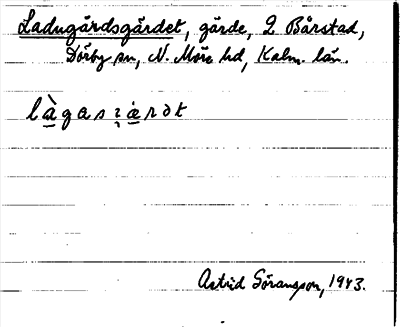 Ladugärdsgärdet, gärde, 2 Bårstad,
Dörby sn, N. Möre hd, Kalm. län.
Astrid Göransson, 1943.